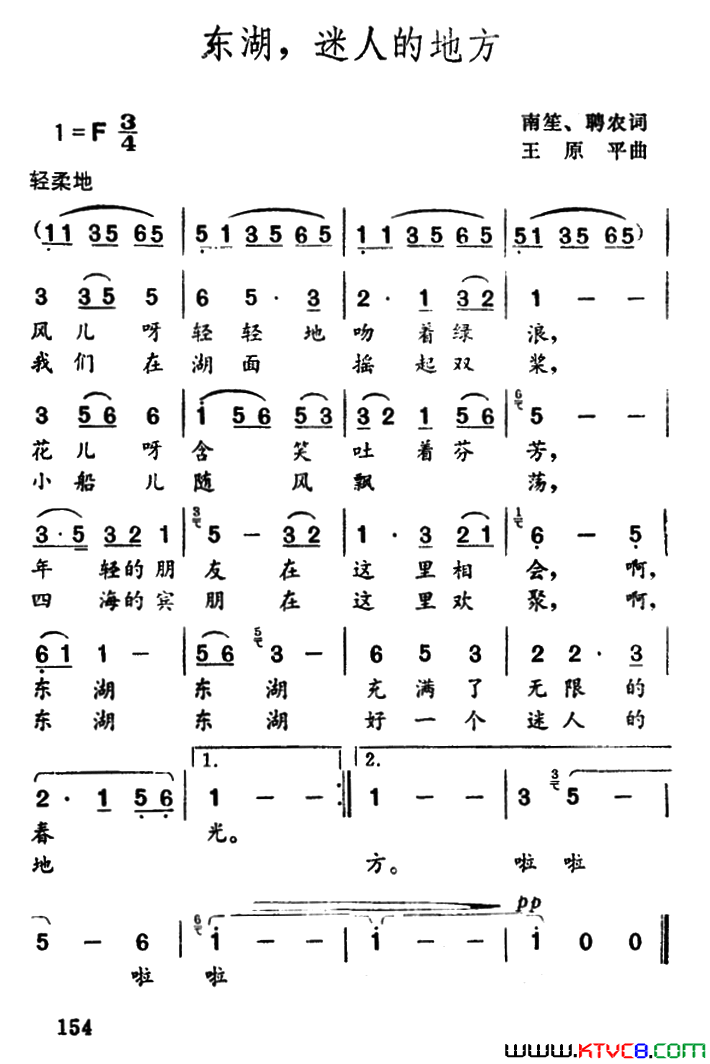 东湖，迷人的地方
1=F 3/4
南笙、聘农词
王原平曲
轻柔地
(11 35 65 | 51 35 65 | 11 35 65 | 51 35 65)
3 35 5 | 6 5· 3 | 2· 1 32 | 1 – –
风儿呀轻轻地吻着绿浪，
我们在湖面摇起双桨，
3 56 6 | i 56 53 | 32 1 56 | 6 5 – –
花儿呀含笑吐着芬芳，
小船儿随风飘荡，
3·5 32 1 | 3 5 – 32 | 1· 3 21 | 1 6 – 5
年轻的朋友在这里相会，啊，
四海的宾朋在这里欢聚，啊，
61 1 – | 56 5 3 – | 6 5 3 | 2 2· 3
东湖东湖充满了无限的
东湖东湖好一个迷人的
1. 2.
2· 1 56 | 1 – – :| 1 – – | 3 3 5 –
春光。
地方。啦啦
pp
5 – 6 | 6 i – – | i – – | i 0 0
啦啦
154
www.KTVC8.com